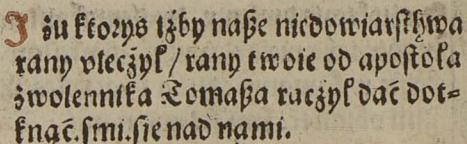 Jżu ktorys iżby naße niedowiarſthwa
rany vlecżył / rany twoie od apoſtoła
żwolennika Tomaßa racżył dać dot⸗
knąć. ſmi. ſie nad nami.